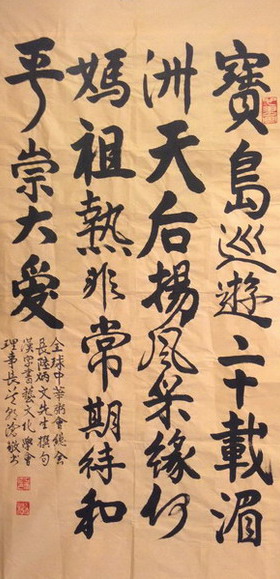 寶島巡遊二十載湄
洲天后揚風采緣何
媽祖熱非常期待和
平崇大愛
全球中華粥會總會
長陸炳文先生撰句
漢字書藝文化學會
理事長